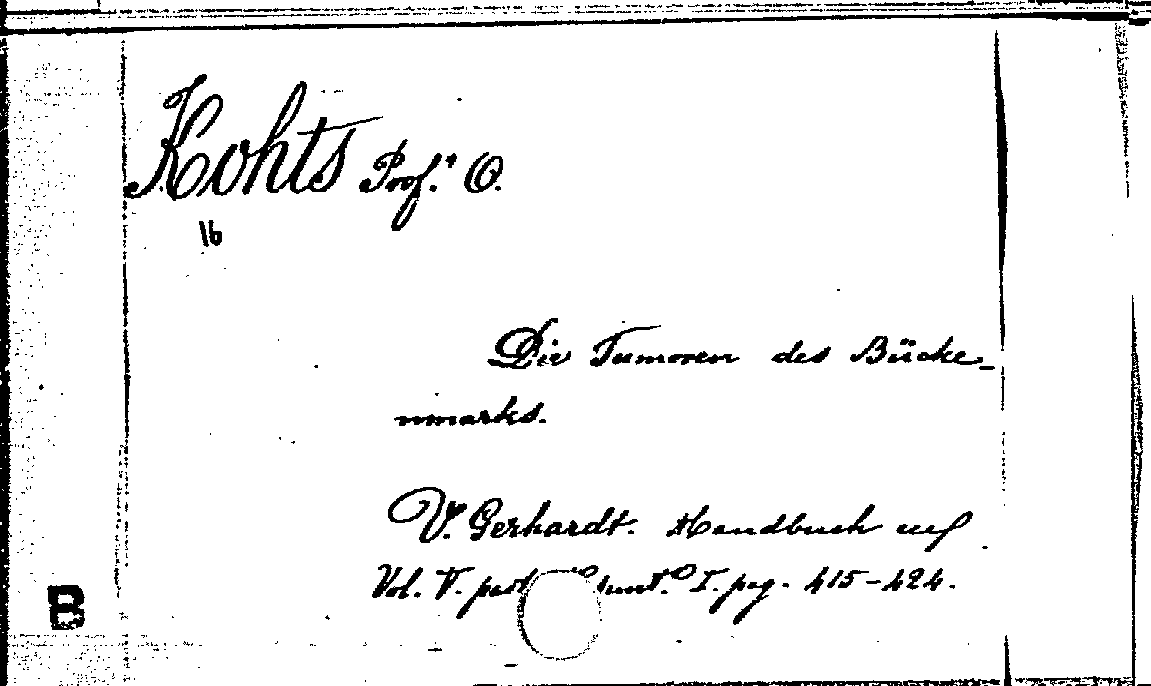 Kohts Prof.r O.
16
Die Tumoren des Bücke-
nmarks.
V. Gerhardt. Handbuch
Vol. V. I. pag. 415-424.
B